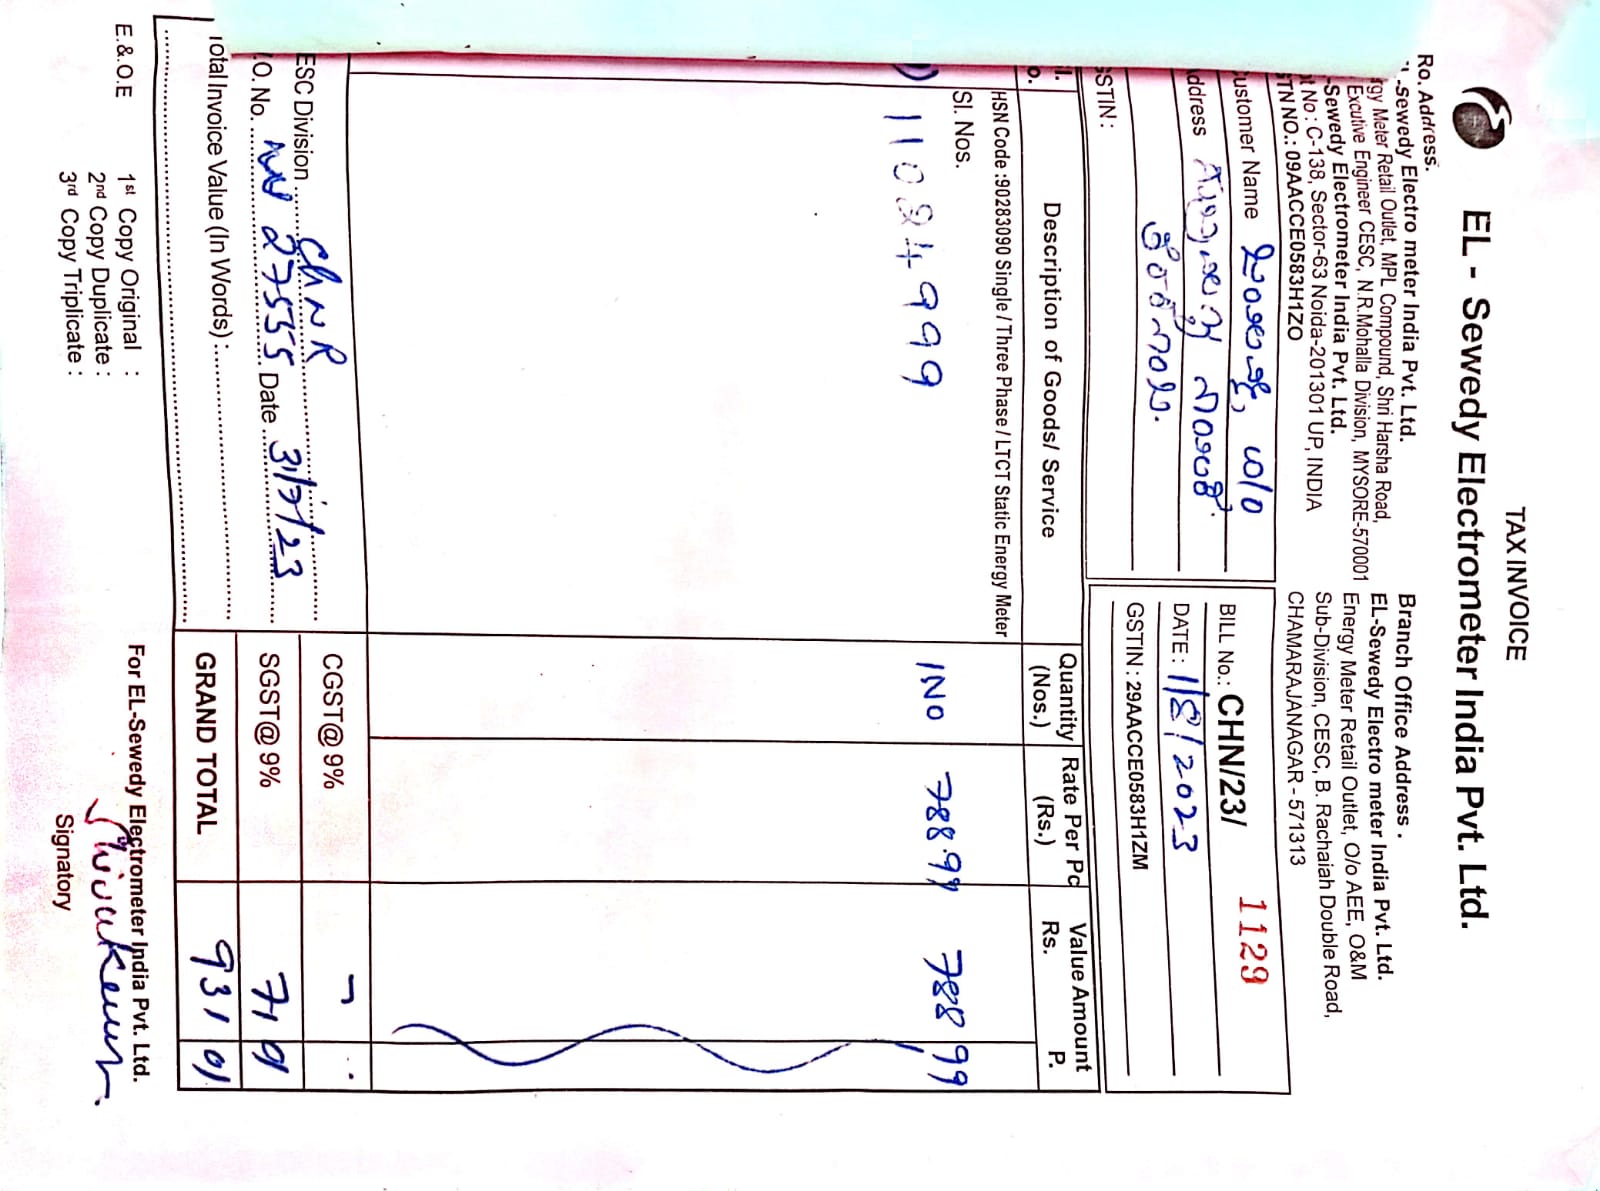 TAX INVOICE
EL - Sewedy Electrometer India Pvt. Ltd.
Ro. Address:
-Sewedy Electro meter India Pvt. Ltd.
rgy Meter Retail Outlet, MPL Compound, Shri Harsha Road,
Excutive Engineer CESC, N.R.Mohalla Division, MYSORE-570001
-Sewedy Electrometer India Pvt. Ltd.
t No : C-138, Sector-63 Noida-201301 UP, INDIA
TN NO.: 09AACCE0583H1ZO
Branch Office Address .
EL-Sewedy Electro meter India Pvt. Ltd.
Energy Meter Retail Outlet, O/o AEE, O&M
Sub-Division, CESC, B. Rachaiah Double Road,
CHAMARAJANAGAR - 571313
ustomer Name
ddress
STIN :
BILL No.: CHN/23/ 1129
DATE : 1/8/2023
GSTIN : 29AACCE0583H1ZM
l. o. Description of Goods/ Service Quantity (Nos.) Rate Per Pc (Rs.) Value Amount Rs. P.
HSN Code :90283090 Single / Three Phase / LTCT Static Energy Meter
Sl. Nos.
) 11024999 1NO 788.99 788 99
ESC Division CHNR
.O. No. 27555 Date 31/7/23
otal Invoice Value (In Words) :
CGST@9%
SGST@9% 71 01
GRAND TOTAL 931 01
E.&.O.E
1st Copy Original :
2nd Copy Duplicate :
3rd Copy Triplicate :
For EL-Sewedy Electrometer India Pvt. Ltd.
Signatory